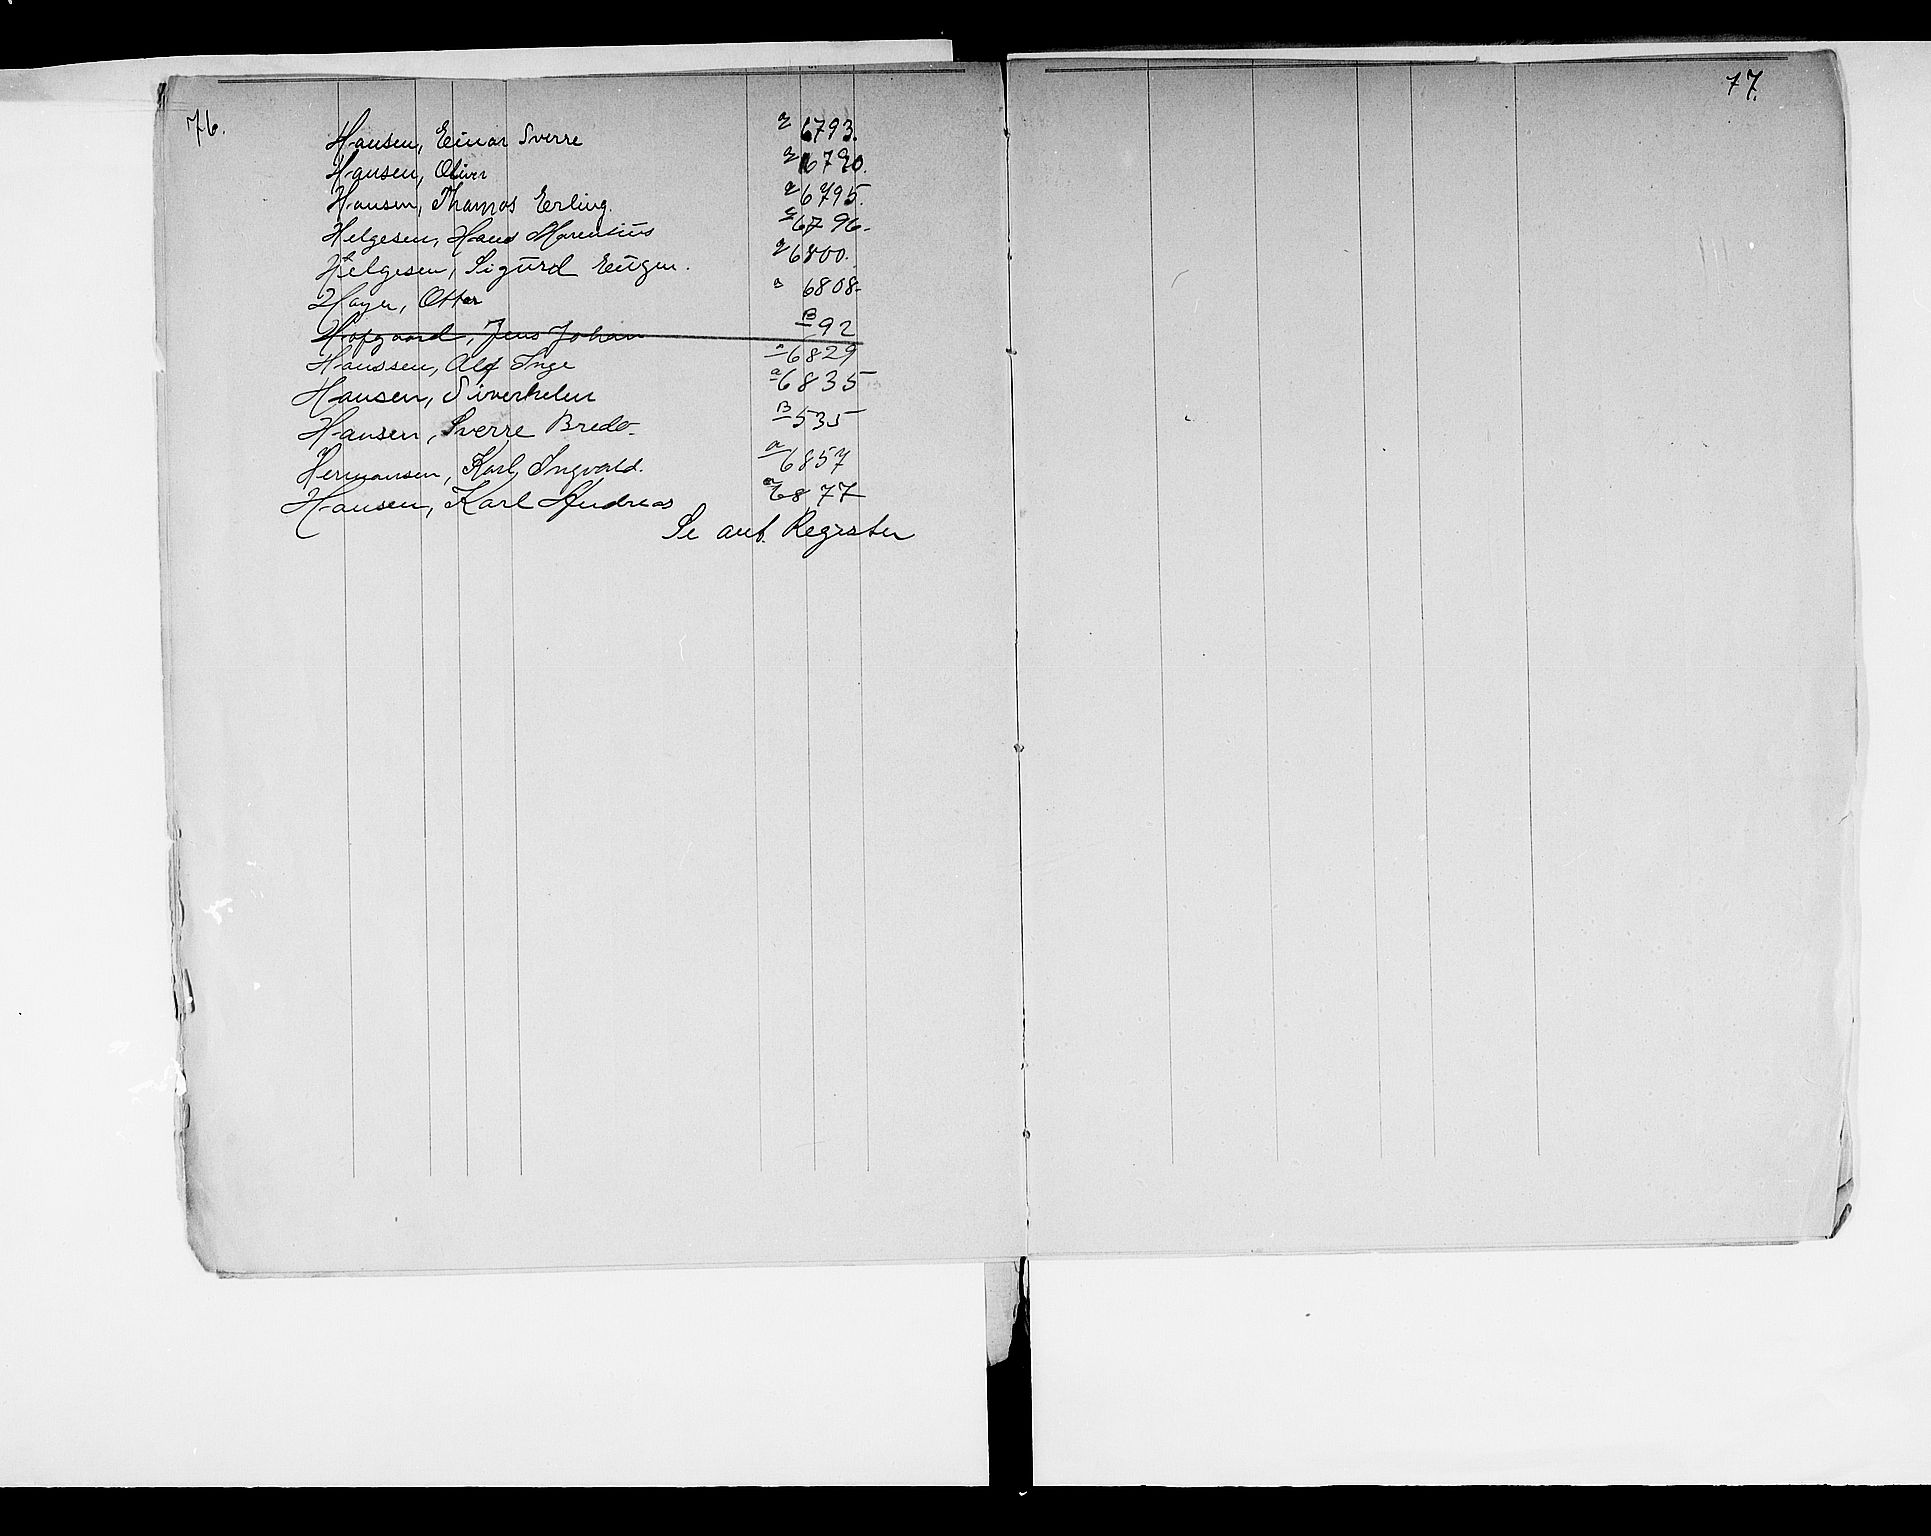 76.
Hansen, Einar Sverre a 6793.
Hansen, Oliver a 6790.
Hansen, Thomas Erling. a 6795.
Helgesen, Hans Marentius a 6796.
Helgesen, Sigurd Eugen. a 6800.
Høyer, Otter a 6808.
Hofgaard, Jens Johan B 92
Hanssen, Alf Inge a 6829
Hansen, a 6835
Hansen, Sverre Bredo. B 535
Hermansen, Karl Ingvald. a 6857
Hansen, Karl Andreas a 6877
Se Register
77.